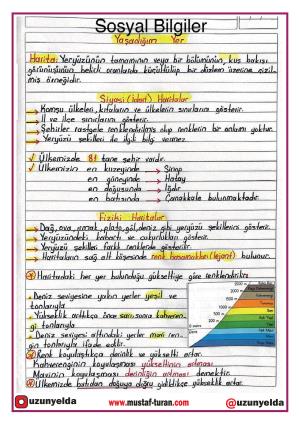 Sosyal Bilgiler
Yaşadığım Yer
Harita: Yeryüzünün tamamının veya bir bölümünün, kuş bakışı
görünüşünün belirli oranlarda küçültülüp bir düzlem üzerine çizil
miş örneğidir.
Siyasi (idari) Haritalar
→ Komşu ülkeleri, kıtaların ve ülkelerin sınırlarını gösterir.
→ İl ve ilçe sınırlarını gösterir.
→ Şehirler rastgele renklendirilmiş olup renklerin bir anlamı yoktur.
→ Yeryüzü şekilleri ile ilgili bilgi vermez.
✓ Ülkemizde 81 tane şehir vardır.
✓ Ülkemizin en kuzeyinde → Sinop
en güneyinde → Hatay
en doğusunda → Iğdır
en batısında → Çanakkale bulunmaktadır.
Fiziki Haritalar
→ Dağ, ova, ırmak, plato, göl, deniz gibi yeryüzü şekillerini gösterir.
→ Yeryüzündeki kabartı ve çukurlukları gösterir.
→ Yeryüzü şekilleri farklı renklerde gösterilir.
→ Haritaların sağ alt köşesinde renk basamakları (lejant) bulunur.
Haritadaki her yer bulunduğu yüksekliğe göre renklendirilir.
Deniz seviyesine yakın yerler yeşil ve
tonlarıyla
Yükseklik arttıkça önce sarı sonra kahveren-
gi tonlarıyla
Deniz seviyesi altındaki yerler mavi ren-
gin tonlarıyla ifade edilir.
Renk koyulaştıkça derinlik ve yükselti artar.
Kahverenginin koyulaşması yükseltinin artması
Mavinin koyulaşması derinliğin artması demektir.
Ülkemizde batıdan doğuya doğru gidildikçe yükseklik artar.
uzunyelda
www.mustaf-turan.com
@uzunyelda